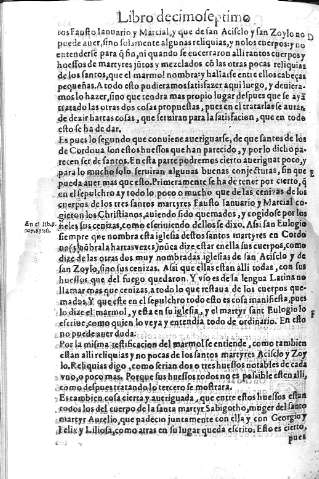 Libro decimoseptimo
tos Fausto Ianuario y Marcial, y que de san Acisclo y san Zoylo no
puede auer, sino solamente algunas reliquias, y no los cuerpos: y no
entenderse para q̃ fin, ni quando se encerraron alli tantos cuerpos y
huessos de martyres jũtos y mezclados cõ las otras pocas reliquias
de los santos, que el marmol nombra y hallarse entre ellos cabeças
pequeñas. A todo esto pudieramos satisfazer aqui luego, y deuiera-
mos lo hazer, sino que tendra mas propio lugar despues que se aya
tratado las otras dos cosas propuestas, pues en el tratarlas se auran
de dezir hartas cosas, que seruiran para la satisfacion, que en todo
esto se ha de dar.
Es pues lo segundo que conuiene aueriguarse, de que santos de los
de Cordoua son estos huessos que han parecido, y por lo dicho pa-
recen ser de santos. En esta parte podremos cierto aueriguar poco, y
para lo mucho solo seruiran algunas buenas conjecturas, sin que
pueda auer mas que esto. Primeramente se ha de tener por cierto, q̃
en el sepulchro ay todo lo poco o mucho que de las cenizas de los
cuerpos de los tres santos martyres Fausto Ianuario y Marcial co-
gieron los Christianos, auiendo sido quemados, y cogidose por los
fieles sus cenizas, como escriuiendo dellos se dixo. Assi san Eulogio
siempre que nombra esta iglesia destos santos martyres en Cordo
ua (y nõbrala hartas vezes) nũca dize estar en ella sus cuerpos, como
dize de las otras dos muy nombradas iglesias de san Acisclo y de
san Zoylo, sino sus cenizas. Assi que ellas estan alli todas, con sus
huessos que del fuego quedaron. Y vso es de la lengua Latina no
llamar mas que cenizas, a todo lo que restaua de los cuerpos que-
mados. Y que este en el sepulchro todo esto es cosa manifiesta, pues
lo dize el marmol, y esta en su iglesia, y el martyr sant Eulogio lo
escriue, como quien lo veya y entendia todo de ordinario. En esto
no puede auer duda.
Por la misma testificacion del marmol se entiende, como tambien
estan alli reliquias y no pocas de los santos martyres Acisclo y Zoy
lo. Reliquias digo, como serian dos o tres huessos notables de cada
vno, o poco mas. Porque sus huessos todos no es posible esten alli,
como despues tratando lo tercero se mostrara.
Es tambien cosa cierta y aueriguada, que entre estos huessos estan
todos los del cuerpo de la santa martyr Sabigotho, muger del santo
martyr Aurelio, que padecio juntamente con ella y con Georgio y
Felix y Liliosa, como atras en su lugar queda escrito. Esto es cierto,
pues
En el lib.